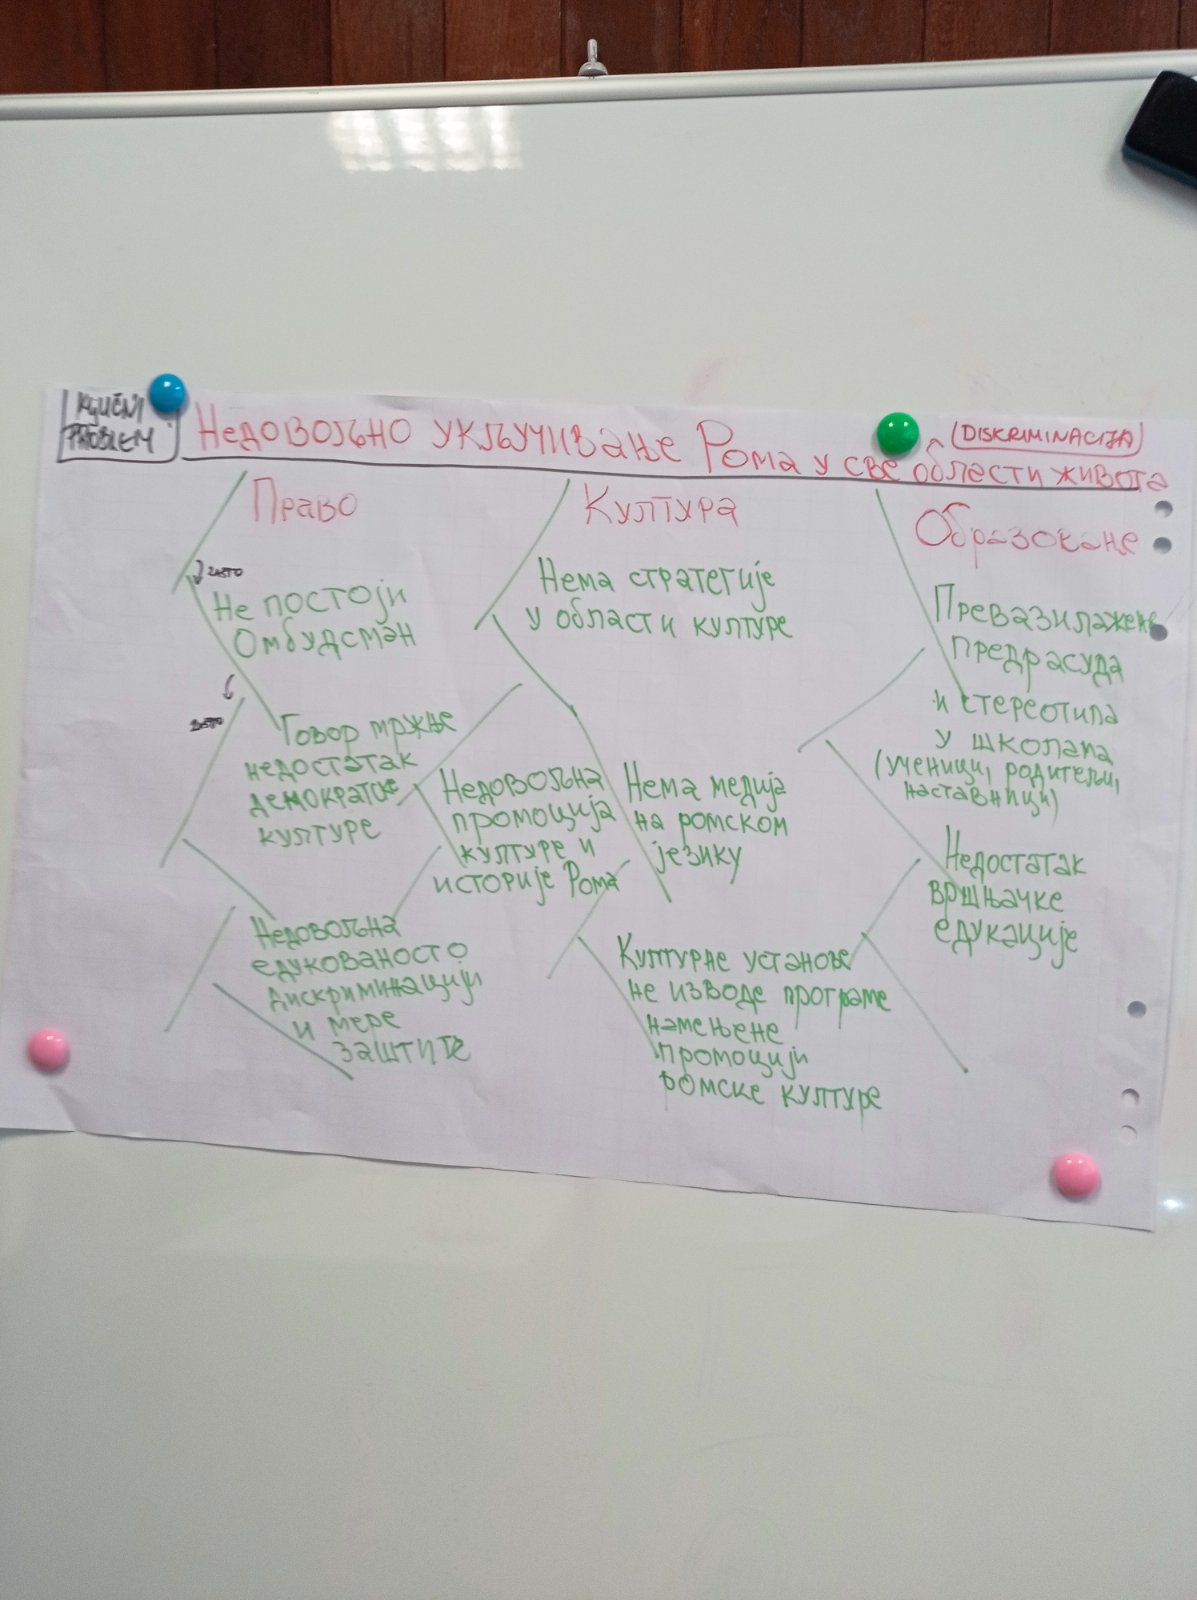 KLJUČNI
PROBLEM
Недовољно укључивање Рома у све области живота
(DISKRIMINACIJA)
Право
зато
Не постоји
Омбудсман
зато
Говор мржње
недостатак
демократске
културе
Недовољна
едукованост о
дискриминацији
и мере
заштите
Култура
Нема стратегије
у области културе
Недовољна
промоција
културе и
историје Рома
Нема медија
на ромском
језику
Културне установе
не изводе програме
намењене
промоцији
ромске културе
Образоване
Превазилажене
предрасуда
и стереотипа
у школапа
(ученици, родитељи,
наставници)
Недостатак
вршњачке
едукације